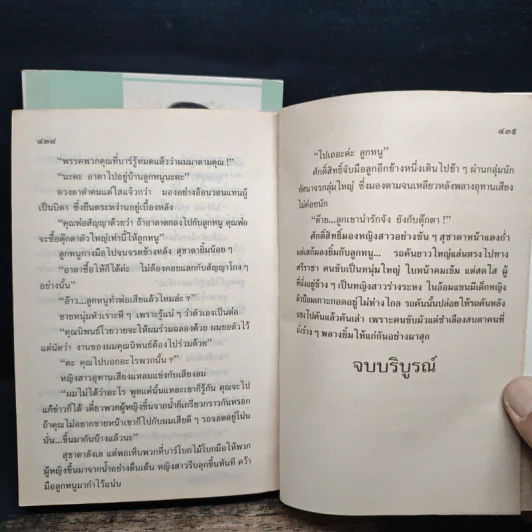 ๔๓๘
“พรรคพวกคุณที่บาร์รู้หมดแล้วว่าผมมาตามคุณ !”
“นะคะ อาตาไปอยู่บ้านลูกหนูนะคะ”
ดวงตาดำคมแต่ใสแจ๋วกว่า มองอย่างอ้อนวอนแทนผู้
เป็นบิดา ซึ่งยืนตระหง่านอยู่เบื้องหลัง
“คุณพ่อสัญญาด้วยว่า ถ้าอาตาตกลงไปกับลูกหนู คุณพ่อ
จะซื้อตุ๊กตาตัวใหญ่เท่านี้ให้ลูกหนู”
ลูกหนูกางมือไปจนจรดข้างหลัง สุชาดายิ้มน้อย ๆ
“อาตาซื้อให้ก็ได้ค่ะ ไม่ต้องคอยแลกกับสัญญาโกง ๆ
อย่างนั้น”
“อ้าว...ลูกหนูทำพ่อเสียแล้วไหมล่ะ ?”
ชายหนุ่มหัวเราะหึ ๆ เพราะรู้แน่ ๆ ว่าตัวเองเป็นต่อ
“คุณนิพนธ์ไวยวายจะให้ผมร่วมฉลองด้วย ผมขอตัวไว้
แต่นัดว่า งานของผมคุณนิพนธ์ต้องไปร่วมด้วย”
“คะ คุณไปบอกอะไรพวกนั้น ?”
หญิงสาวอุทานเสียงแหลมแข่งกับเสียงลม
“ผมไม่ได้ว่าอะไร พูดแค่นั้นแหละเขาก็รู้กัน คุณจะไป
แก้ข่าวก็ได้ เดี๋ยวพวกผู้หญิงขึ้นจากน้ำก็เกรียวกราวกันหรอก
ถ้าคุณไม่อยากขายหน้าเขาก็ไปกับผมเสียดี ๆ รถจอดอยู่โน่น
นั่น...ขึ้นมากันบ้างแล้วนะ”
สุชาดาลังเล แต่พอเห็นพวกที่บาร์โบกไม้โบกมือให้พวก
ผู้หญิงขึ้นมาจากน้ำอย่างตื่นเต้น หญิงสาวรีบลุกขึ้นทันที คว้า
มือลูกหนูมากำไว้แน่น
๔๓๙
“ไปเถอะค่ะ ลูกหนู”
ศักดิ์สิทธิ์จับมือลูกอีกข้างหนึ่งเดินไปช้า ๆ ผ่านกลุ่มนัก
ทัศนาจรกลุ่มใหญ่ ซึ่งมองตามจนเหลียวหลังพลางอุทานเสียง
ไม่ค่อยนัก
“ต๊าย...ลูกเขาน่ารักจัง ยังกับตุ๊กตา !”
ศักดิ์สิทธิ์มองหญิงสาวอย่างขัน ๆ สุชาดาหน้าแดงก่ำ
แต่สก้มลงยิ้มกับลูกหนู... รถคันยาวใหญ่แล่นตรงไปทาง
ศรีราชา คนขับเป็นหนุ่มใหญ่ ใบหน้าคมเข้ม แต่สดใส ผู้
ที่นั่งอยู่ข้าง ๆ เป็นหญิงสาวร่างระหง ในอ้อมแขนมีเด็กหญิง
เกาะกอดอยู่ไม่ห่างไกล รถคันนั้นปล่อยให้รถคันหลัง
แซงไปคันแล้วคันเล่า เพราะคนขับมัวแต่ชำเลืองสบตาคนที่
นั่งข้าง ๆ พลางยิ้มให้แก่กันอย่างผาสุก
จบบริบูรณ์